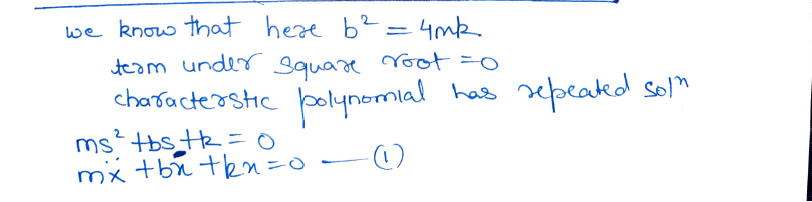 we know that here b² = 4mk
term under square root = 0
characterstic polynomial has repeated solⁿ
ms² + bs + k = 0
mẍ + bẋ + kx = 0 — (1)